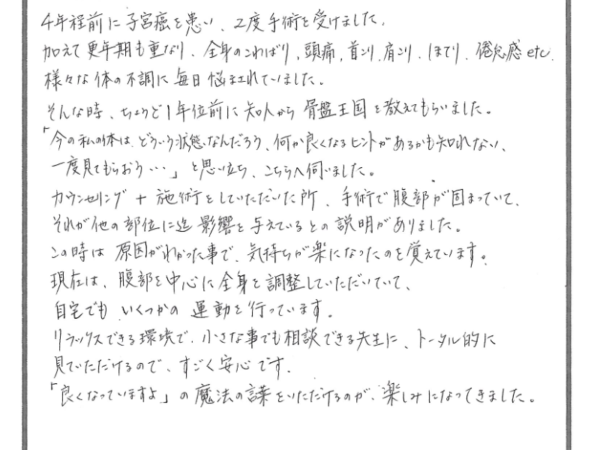 4年程前に子宮癌を患い、2度手術を受けました。
加えて更年期も重なり、全身のこわばり、頭痛、首こり、肩こり、ほてり、倦怠感etc.
様々な体の不調に毎日悩まされていました。
そんな時、ちょうど1年位前に知人から骨盤王国を教えてもらいました。
「今の私の体は、どういう状態なんだろう、何か良くなるヒントがあるかも知れない、
一度見てもらおう…」と思い立ち、こちらへ伺いました。
カウンセリング+施術をしていただいた所、手術で腹部が固まっていて、
それが他の部位に迄影響を与えているとの説明がありました。
この時は原因がわかった事で、気持ちが楽になったのを覚えています。
現在は、腹部を中心に全身を調整していただいていて、
自宅でもいくつかの運動を行っています。
リラックスできる環境で、小さな事でも相談できる先生に、トータル的に
見ていただけるので、すごく安心です。
「良くなっていますよ」の魔法の言葉をいただけるのが、楽しみになってきました。